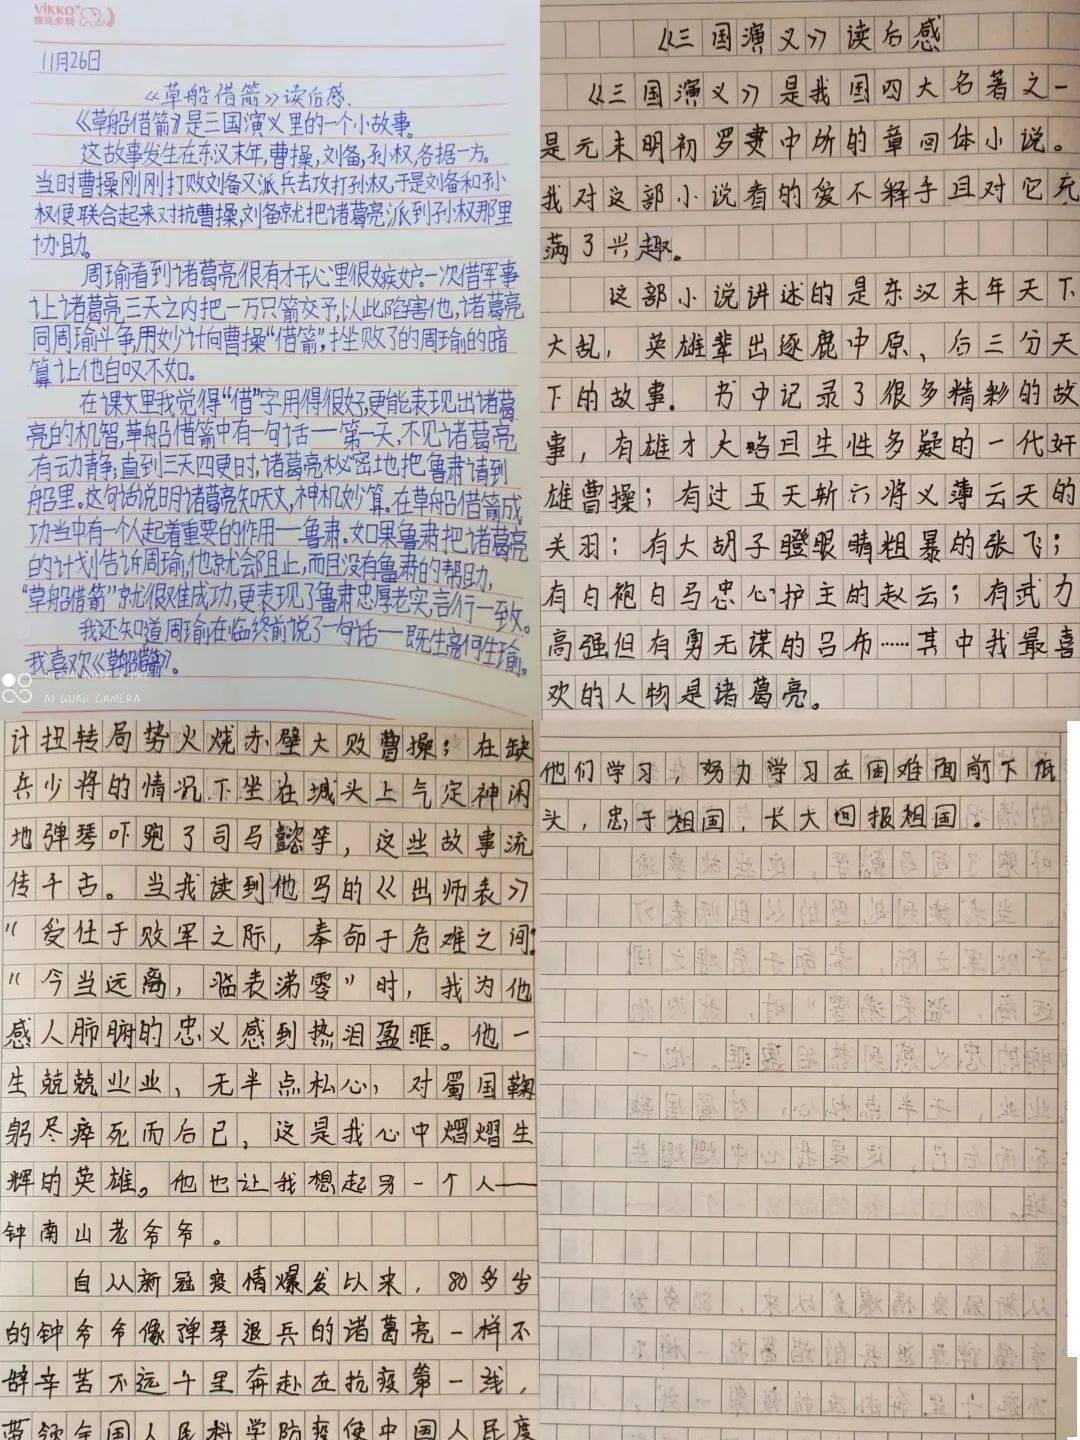 VIKKO
维克多利
11月26日
《草船借箭》读后感.
《草船借箭》是三国演义里的一个小故事。
这故事发生在东汉末年,曹操,刘备,孙权,各据一方。
当时曹操刚刚打败刘备又派兵去攻打孙权,于是刘备和孙
权便联合起来对抗曹操,刘备就把诸葛亮派到孙权那里
协助。
周瑜看到诸葛亮很有才干,心里很嫉妒。一次借军事
让诸葛亮三天之内把一万只箭交予,以此陷害他,诸葛亮
同周瑜斗争,用妙计向曹操“借箭”,挫败了的周瑜的暗
算让他自叹不如。
在课文里我觉得“借”字用得很好,更能表现出诸葛
亮的机智,草船借箭中有一句话——第一天,不见诸葛亮
有动静,直到三天四更时,诸葛亮秘密地把鲁肃请到
船里。这句话说明诸葛亮知天文,神机妙算。在草船借箭成
功当中有一个人起着重要的作用——鲁肃.如果鲁肃把诸葛亮
的计划告诉周瑜,他就会阻止,而且没有鲁肃的帮助,
“草船借箭”就很难成功,更表现了鲁肃忠厚老实,言行一致。
我还知道周瑜在临终前说了一句话——既生亮何生瑜。
我喜欢《草船借箭》。
AI QUAD CAMERA
《三国演义》读后感
《三国演义》是我国四大名著之一
是元末明初罗贯中所的章回体小说。
我对这部小说看的爱不释手且对它充
满了兴趣。
这部小说讲述的是东汉末年天下
大乱,英雄辈出逐鹿中原、后三分天
下的故事.书中记录了很多精彩的故
事,有雄才大略且生性多疑的一代奸
雄曹操;有过五关斩六将义薄云天的
关羽:有大胡子瞪眼睛粗暴的张飞;
有白袍白马忠心护主的赵云;有武力
高强但有勇无谋的吕布……其中我最喜
欢的人物是诸葛亮。
计扭转局势火烧赤壁大败曹操;在缺
兵少将的情况下坐在城头上气定神闲
地弹琴吓跑了司马懿等,这些故事流
传千古。当我读到他写的《出师表》
“受任于败军之际,奉命于危难之间”
“今当远离,临表涕零”时,我为他
感人肺腑的忠义感到热泪盈眶。他一
生兢兢业业、无半点私心,对蜀国鞠
躬尽瘁死而后已,这是我心中熠熠生
辉的英雄。他也让我想起另一个人——
钟南山老爷爷。
自从新冠疫情爆发以来,80多岁
的钟爷爷像弹琴退兵的诸葛亮一样不
辞辛苦不远千里奔赴在抗疫第一线,
带领全国人民科学防疫使中国人民度
他们学习,努力学习在困难面前不低
头,忠于祖国,长大回报祖国.